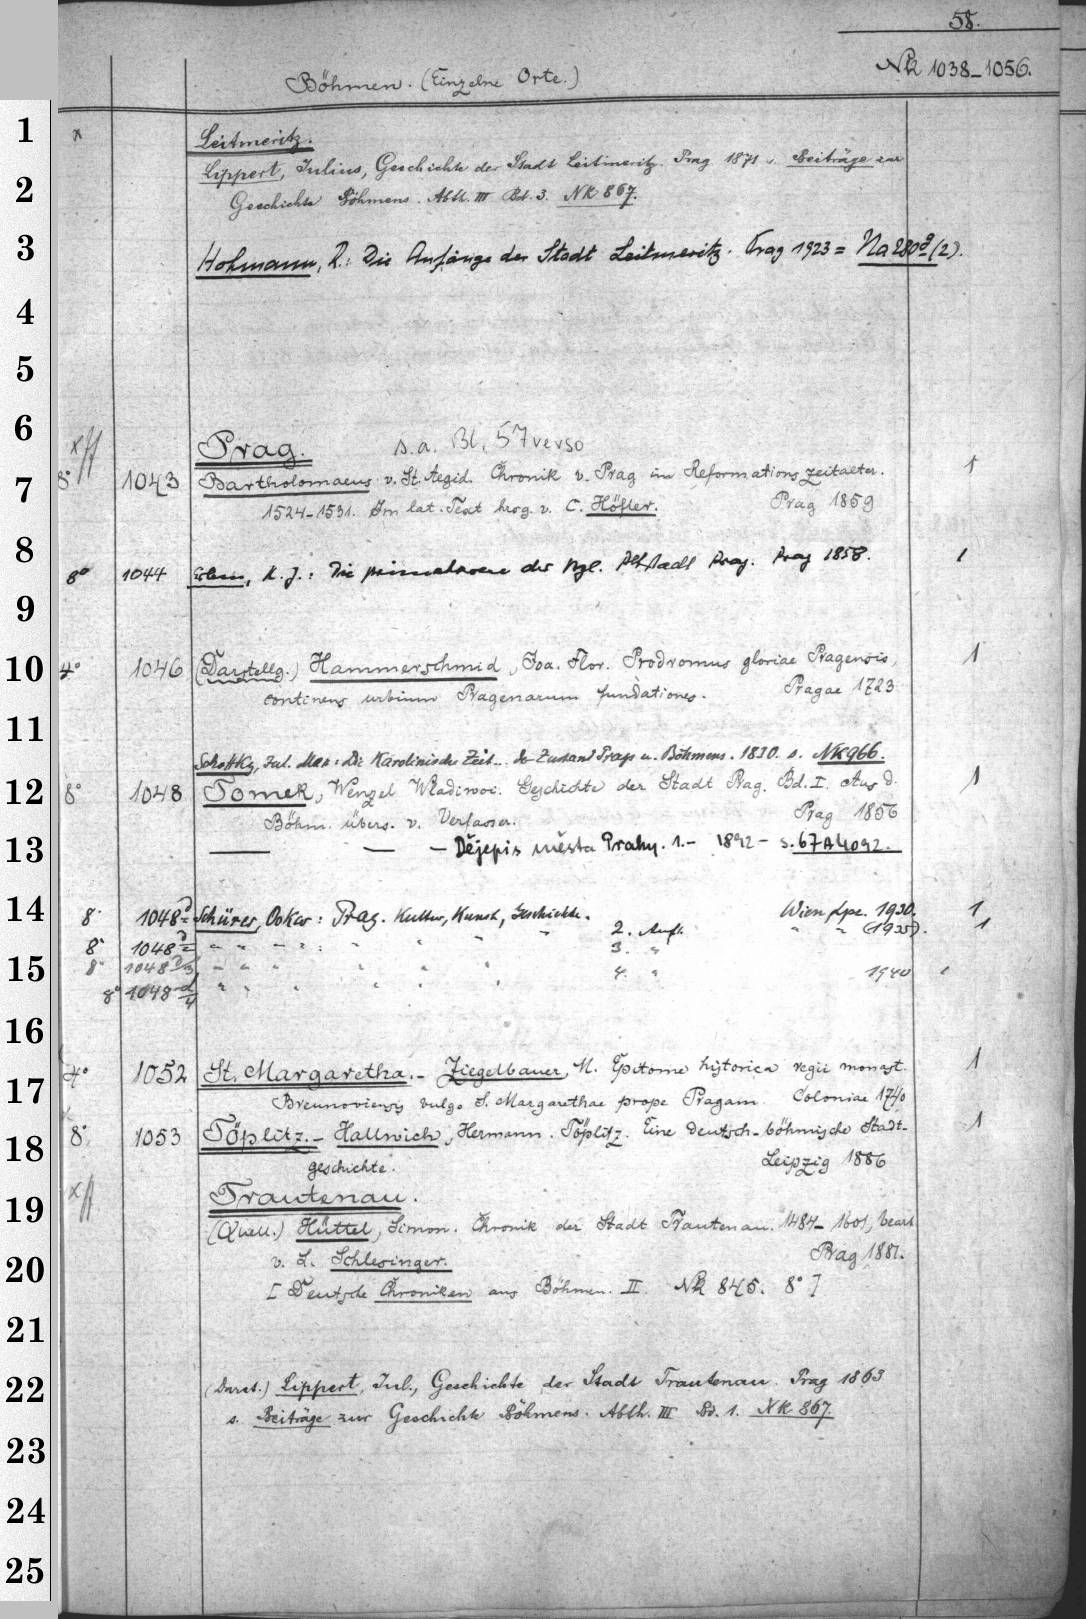 58.
Böhmen. (Einzelne Orte.)
Nk 1038-1056.
1 x Leitmeritz.
Lippert, Julius, Geschichte der Stadt Leitmeritz. Prag 1871 s. Beiträge zur
2 Geschichte Böhmens. Abth. III Bd. 3. NK 867.
3 Hohmann, R.: Die Anfänge der Stadt Leitmeritz. Prag 1923 = Na 280 (2).
4
5
6 Prag. s.a. Bl. 57 verso
7 8° 1043 Bartholomaeus v. St. Aegid. Chronik v. Prag im Reformationszeitalter. 1
1524-1531. Im lat. Text hrsg. v. C. Höfler. Prag 1859
8 8° 1044 Erben, K. J.: Die Primatoren der kgl. Altstadt Prag. Prag 1858. 1
9
10 4° 1046 (Darstellg.) Hammerschmid, Joa. Flor. Prodromus gloriae Pragensis, 1
continens urbium Pragenarum fundationes. Pragae 1723
11
Schottky, Jul. Max: Die Karolinische Zeit.. d. Zustand Prags u. Böhmens. 1830. s. NK 966.
12 8° 1048 Tomek, Wenzel Wladiwoi. Geschichte der Stadt Prag. Bd. I. Aus d. 1
Böhm. übers. v. Verfasser. Prag 1856
13 — — — Dějepis města Prahy. 1.- 1892 - s. 67 A 4092.
14 8° 1048 d Schürer, Oskar: Prag. Kultur, Kunst, Geschichte. Wien Lpz. 1930. 1
8° 1048 d/2 " " " " " " " 2. Aufl. " " (1935). 1
15 8° 1048 d/3 " " " " " " 3. "
8° 1048 d/4 " " " " " " 4. " 1940
16
4° 1052 St. Margaretha. - Ziegelbauer, M. Epitome historica regii monast. 1
17 Breunoviensis vulgo S. Margarethae prope Pragam. Coloniae 1740
18 8° 1053 Töplitz. - Hallwich, Hermann. Töplitz. Eine deutsch-böhmische Stadt- 1
geschichte. Leipzig 1886
19 Trautenau.
(Quell.) Hüttel, Simon. Chronik der Stadt Trautenau. 1484-1601, bearb.
20 v. L. Schlesinger. Prag 1881.
[Deutsche Chroniken aus Böhmen. II. Nk 845. 8°]
21
22 (Darst.) Lippert, Jul., Geschichte der Stadt Trautenau. Prag 1863
s. Beiträge zur Geschichte Böhmens. Abth. III Bd. 1. NK 867.
23
24
25